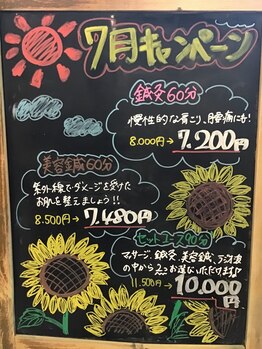 7月キャンペーン
鍼灸60分
慢性的な肩こり、腰痛に!
8.000円→7.200円
美容鍼60分
紫外線でダメージを受けた
お肌を整えましょう!!
8.500円→7.480円
セットコース90分
マッサージ、鍼灸、美容鍼、
の中から2つお選びいただけます♪
11.500円→10.000円